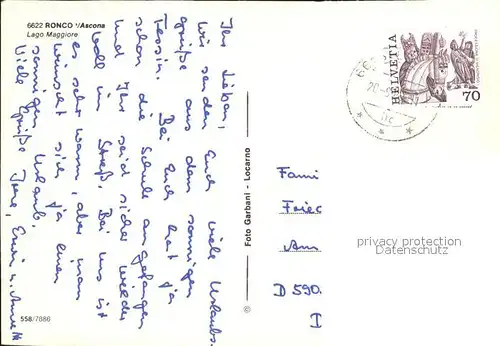 6622 RONCO s/Ascona
Lago Maggiore
Ihr Lieben,
wir senden Euch viele Urlaubs-
grüße aus dem sonnigen
Tessin. Bei Euch hat ja
schon die Schule angefangen
und Ihr seid sicher wieder
voll im Streß. Bei uns ist
es sehr warm, aber man
wünscht sich ja einen
sonnigen Urlaub.
Viele Grüße Eure, Erwin u. Annette
558/7886
Foto Garbani - Locarno
©
HELVETIA
70
Fami
Fried
Am
D 590
privacy protection
Datenschutz